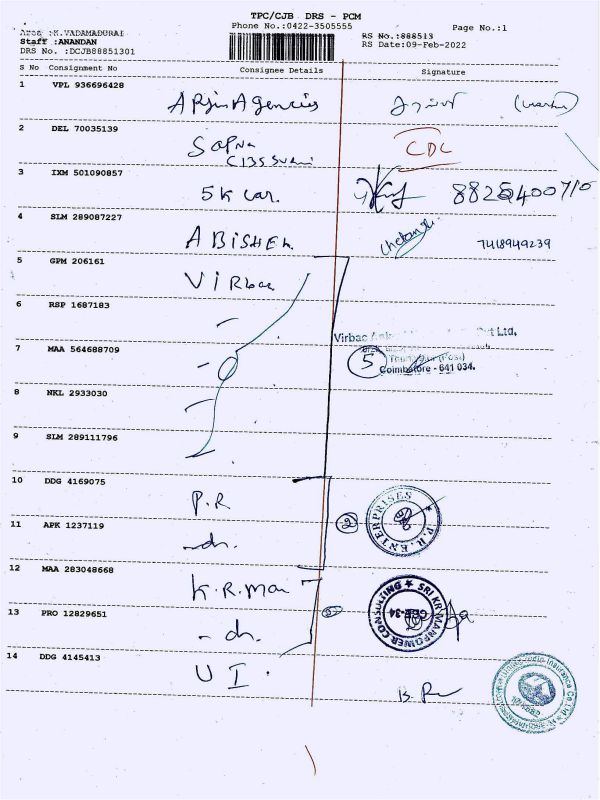 TPC/CJB DRS - PCM
Phone No.:0422-3505555
Page No.:1
Area :K.VADAMADURAI
Staff :ANANDAN
DRS No. :DCJB88851301
RS No.:888513
RS Date:09-Feb-2022
S No Consignment No Consignee Details Signature
1 VPL 936696428 Arjun Agencies
2 DEL 70035139 Sapna CDC
3 IXM 501090857 5K Car.
4 SLM 289087227 ABISHEK Chetan 7418949239
5 GPM 206161 Virbac
6 RSP 1687183
Virbac Pvt Ltd.
7 MAA 564688709 5
Coimbatore - 641 034.
8 NKL 2933030
9 SLM 289111796
10 DDG 4169075 P.R
2 P.R. ENTERPRISES
11 APK 1237119 -do.
12 MAA 283048668 K.R.Man
SRI KR MANPOWER CONSULTING CBE-34
13 PRO 12829651 -do. 2
14 DDG 4145413 U I.